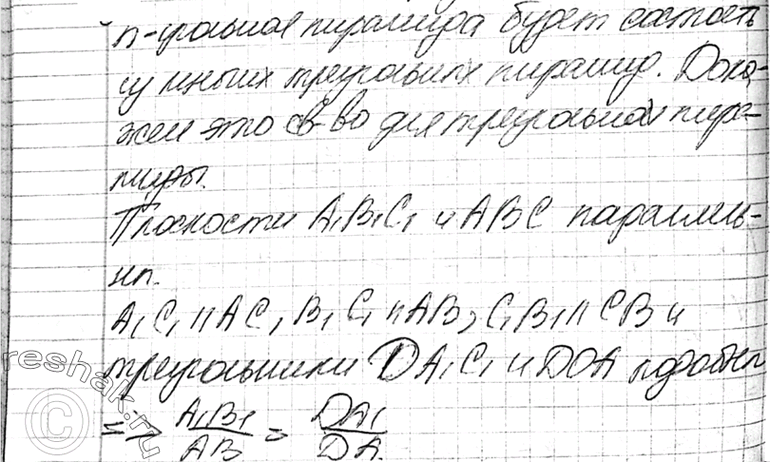 n-угольная пирамида будет состоять
из мн-гих треугольных пирамид. Дока-
жем это св-во для треугольной пира-
миды.
Плоскости A₁B₁C₁ и ABC параллель-
ны.
A₁C₁ ∥ AC, B₁C₁ ∥ AB, C₁B₁ ∥ CB и
треугольники DA₁C₁ и DOA подобны
=> A₁B₁/AB = DA₁/DA.
reshak.ru